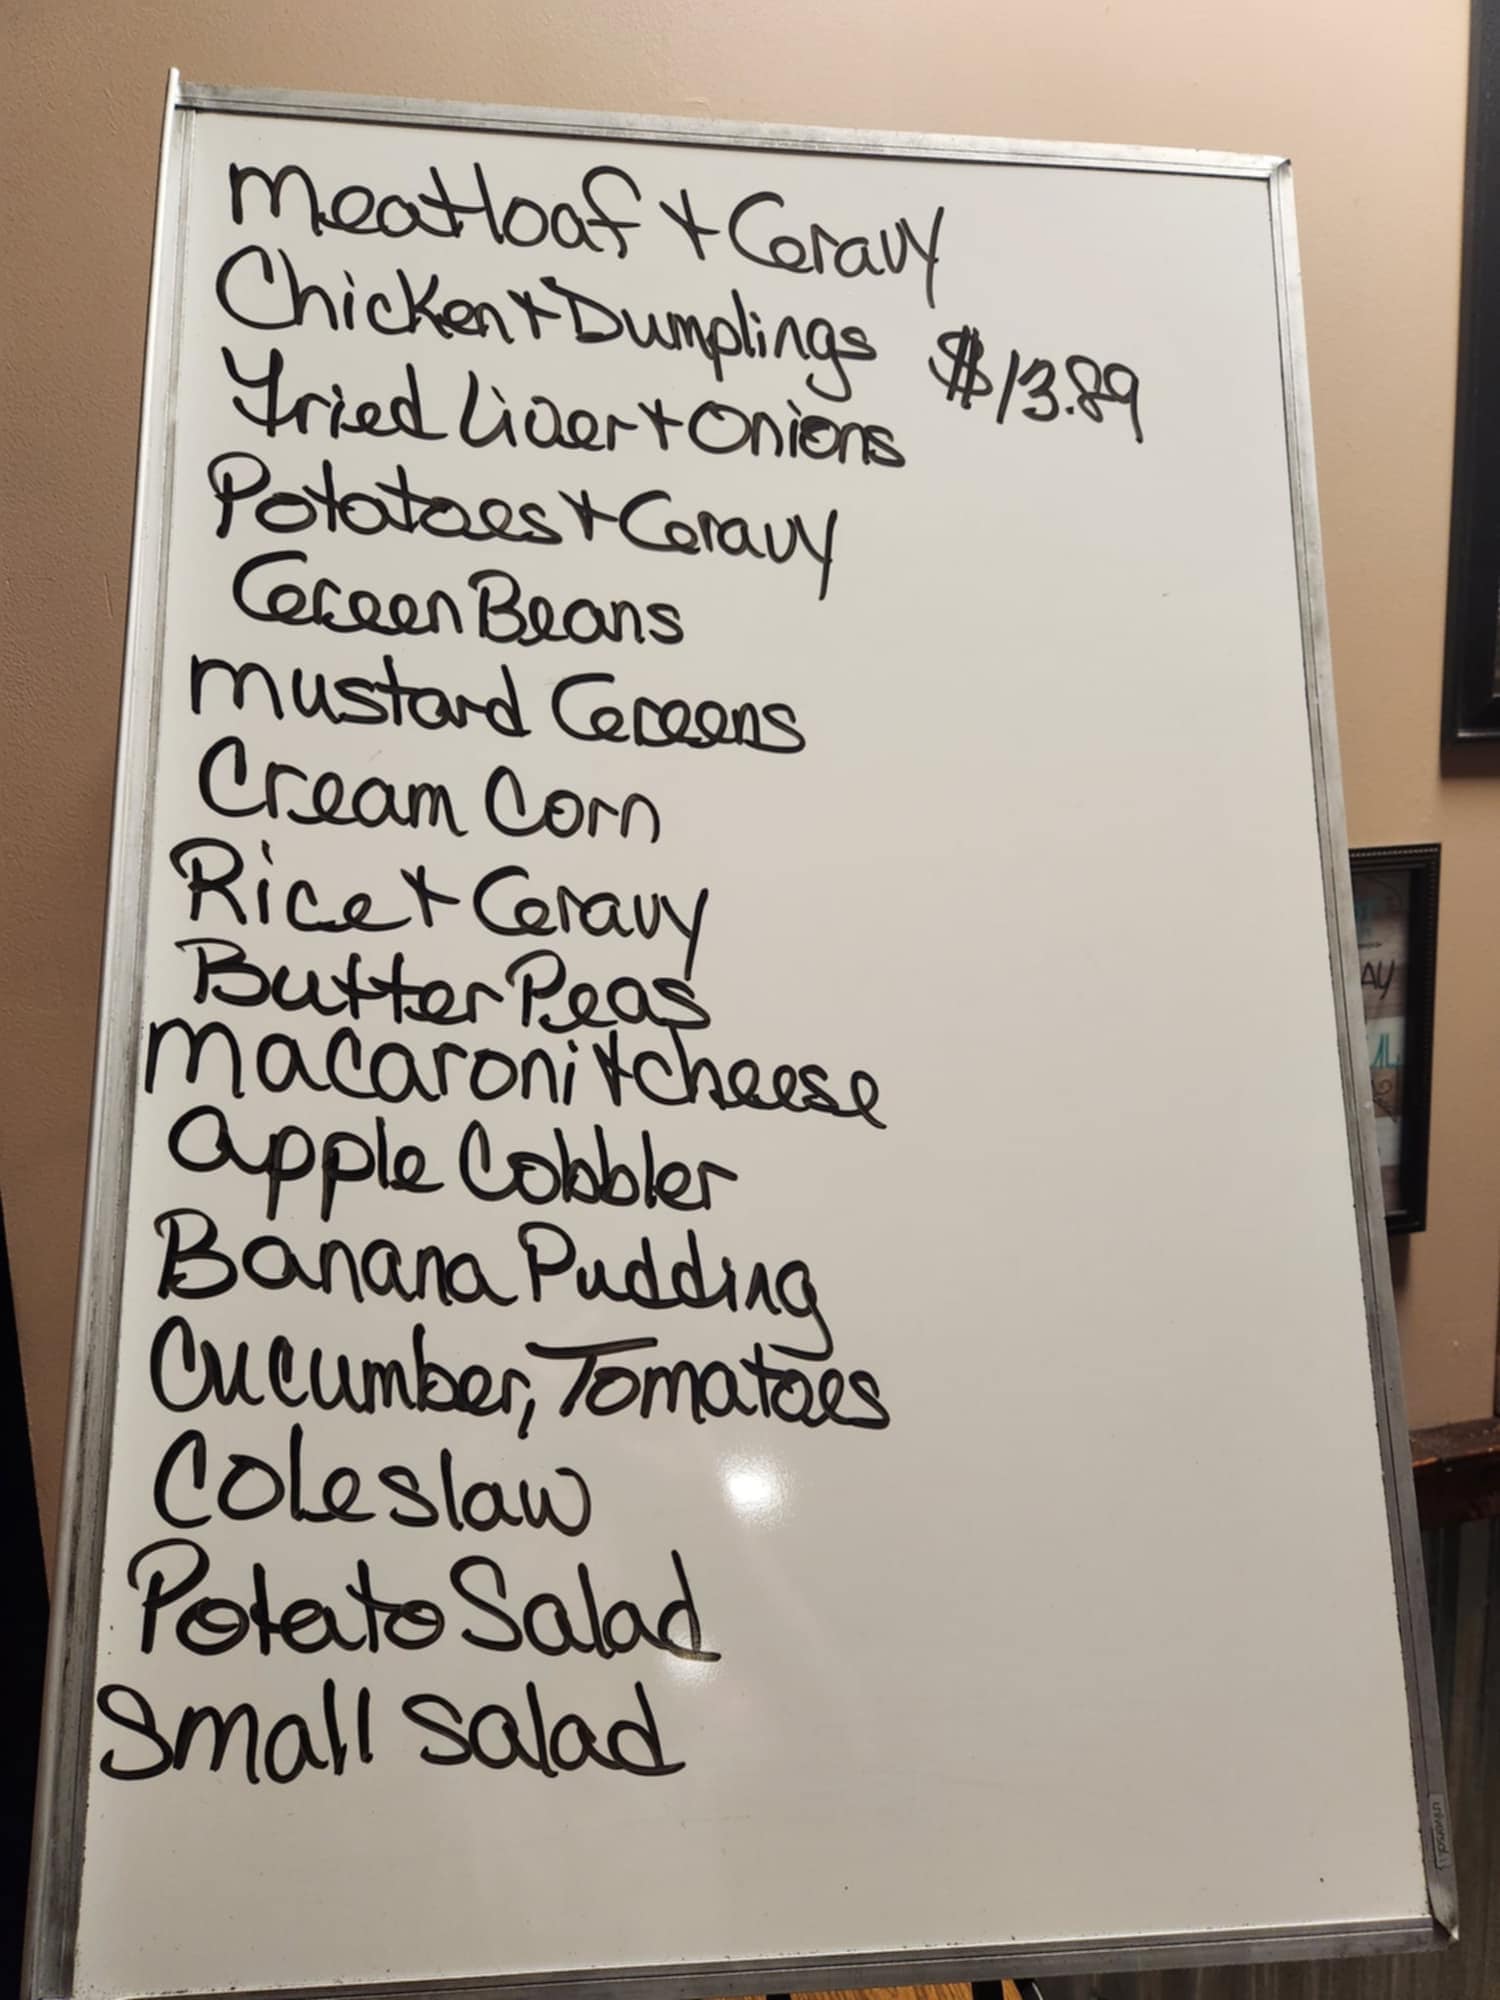 Meatloaf + Gravy
Chicken + Dumplings $13.89
Fried Liver + Onions
Potatoes + Gravy
Green Beans
Mustard Greens
Cream Corn
Rice + Gravy
Butter Peas
Macaroni + cheese
Apple Cobbler
Banana Pudding
Cucumber, Tomatoes
Coleslaw
Potato Salad
Small Salad
AY